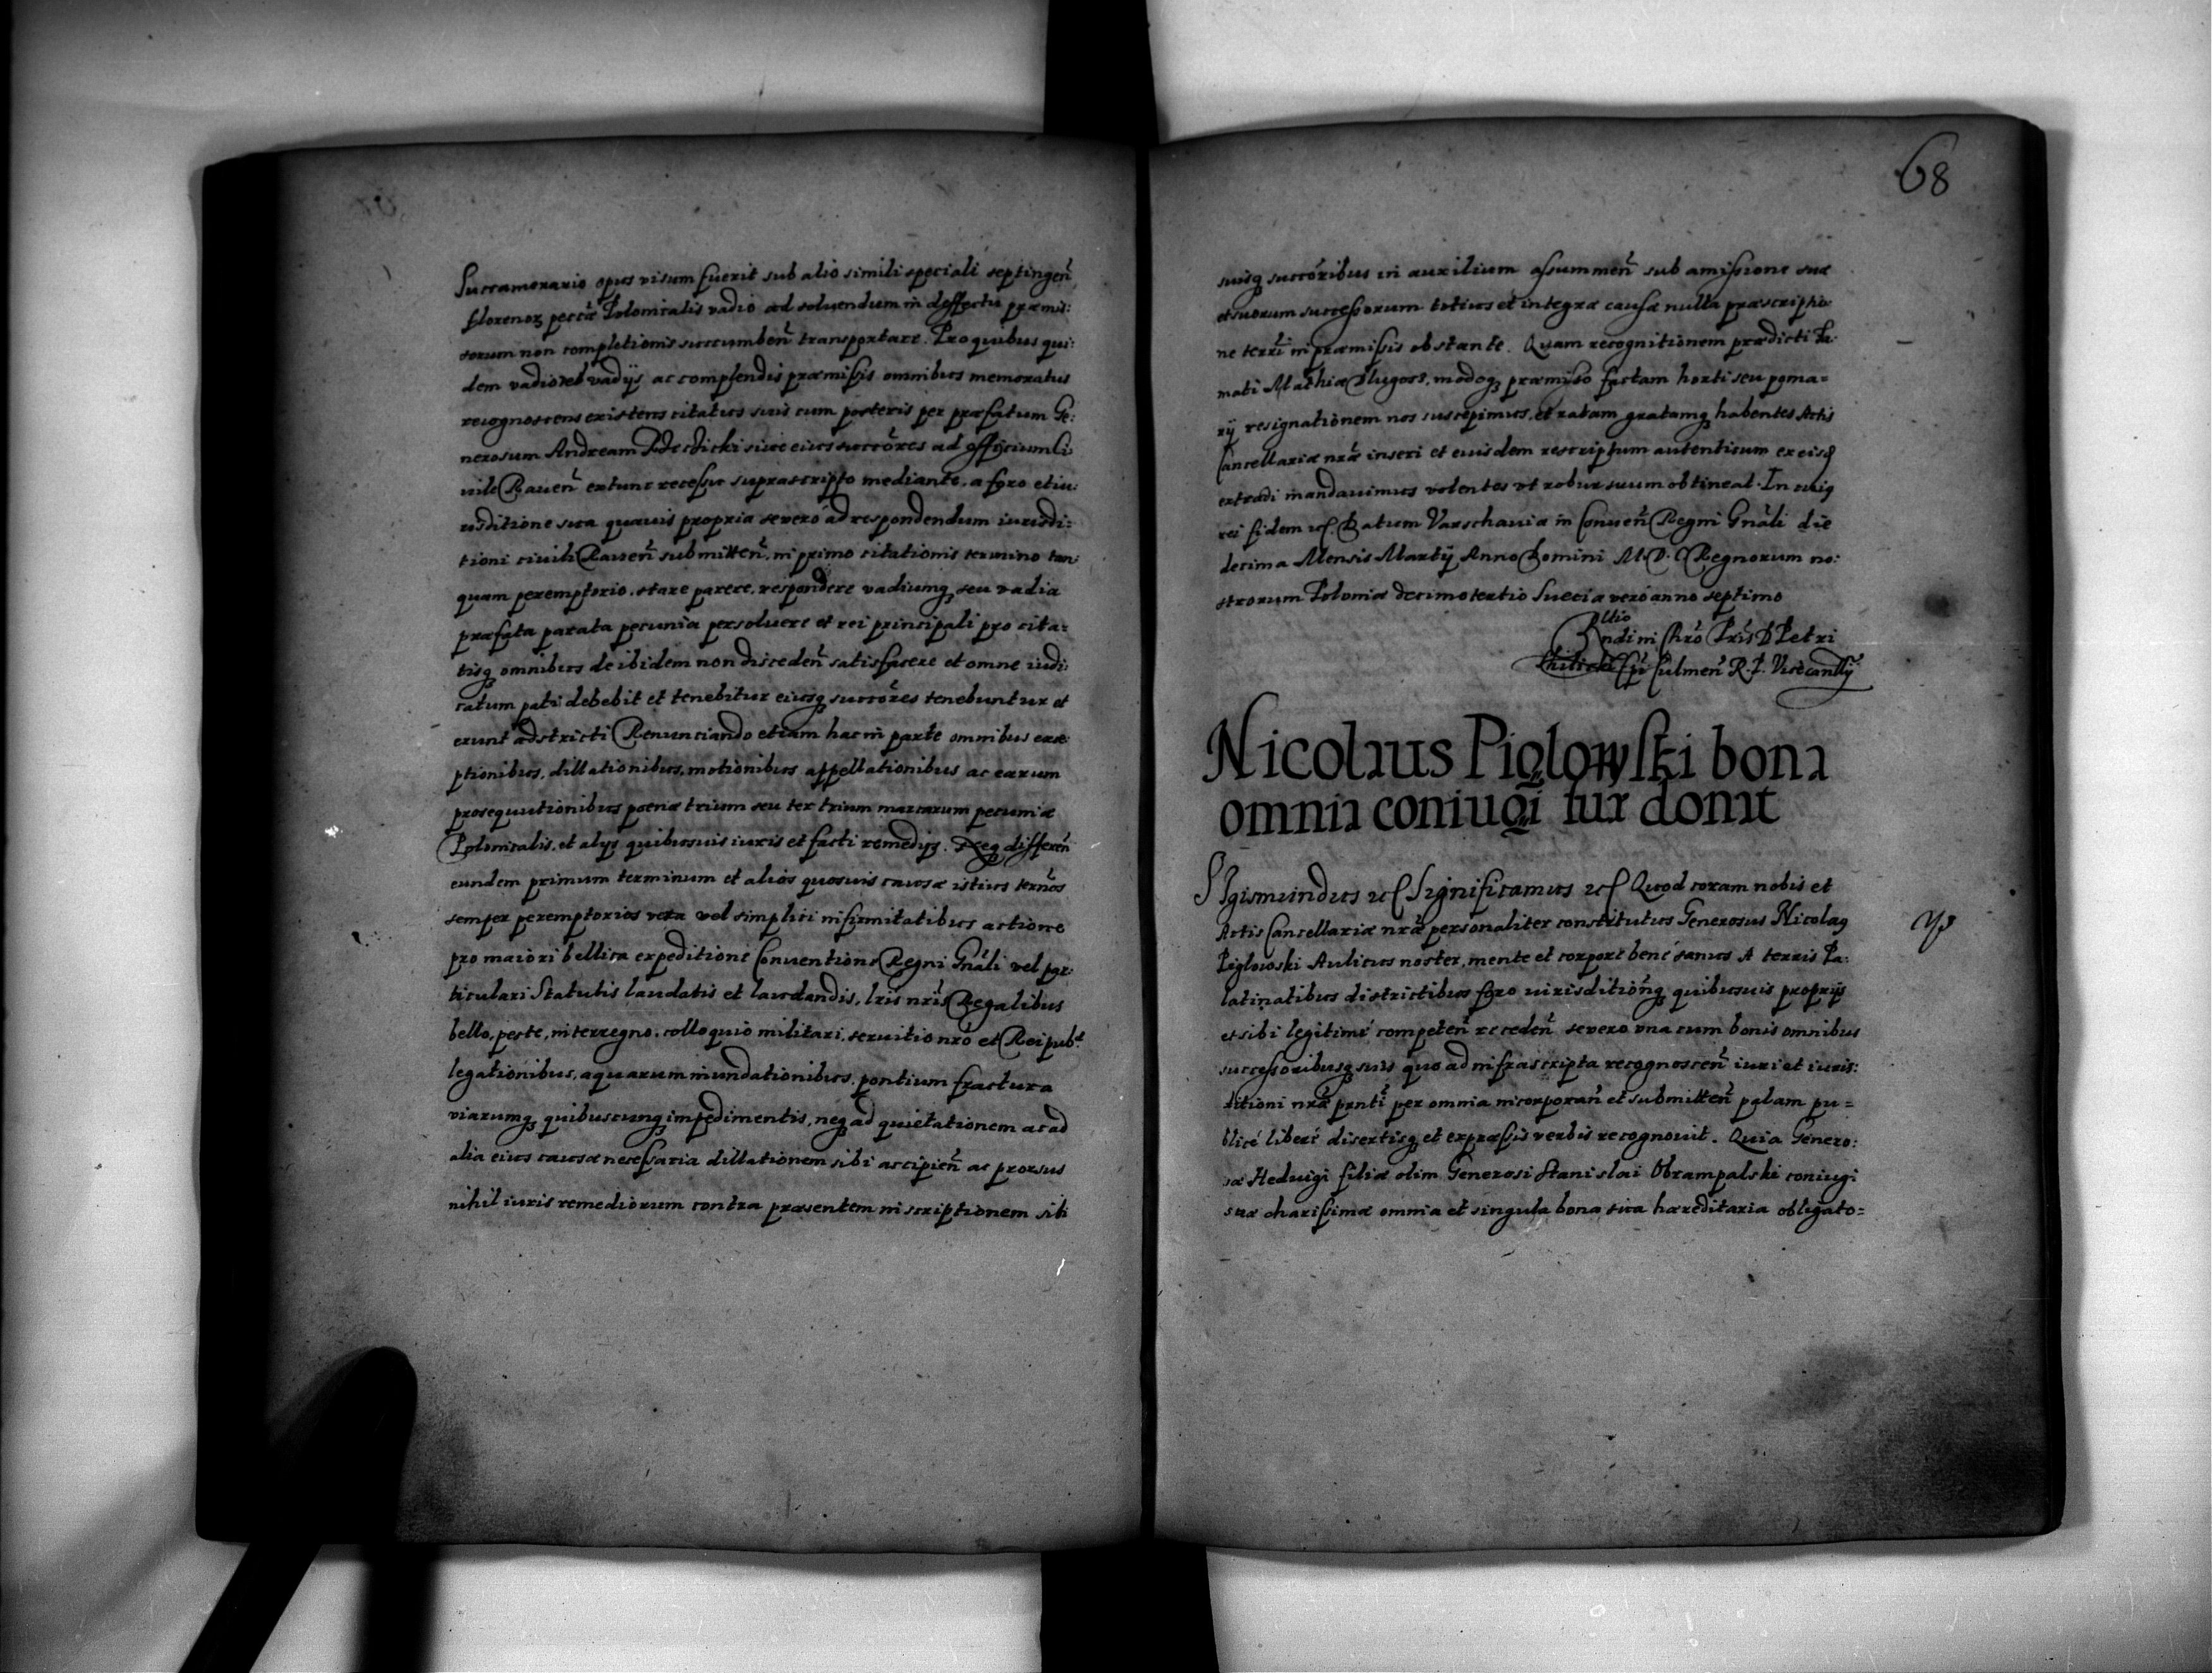 Succamerario opus visum fuerit sub alio simili speciali septingeñ
florenoꝝ pecūæ Polonicalis vadio ad soluendum in deffectu præmis:
sorum non completionis succumbeñ transportare. Pro quibus qui:
dem vadio vel vadijs ac complendis præmissis omnibus memoratus
recognoscens existens citatus suis cum posteris per præfatum Ge:
nerosum Andream siue eius succōres ad officium Ci
uile Raueñ extunc recessu suprascripto mediante, a foro et iu:
risditione sua quauis propria se vero ad respondendum iurisdi:
tioni ciuili Raueñ submitteñ, in primo citationis termino tan:
quam peremptorio, stare parere, respondere vadiumq̨ seu vadia
præfata parata pecunia persoluere et rei principali pro cita:
tisq̨ omnibus de ibidem non discedeñ satisfacere et omne iudi:
catum pati debebit et tenebitur eiusq̨ succōres tenebuntur et
erunt adstricti Renunciando etiam hac in parte omnibus exce
ptionibus, dillationibus, motionibus appellationibus ac earum
prosequutionibus poenæ trium seu ter trium marcarum pecuniæ
Polonicalis, et alijs quibusuis iuris et facti remedijs. Neq̨ differeñ
eundem primum terminum et alios quosuis causæ istius terños
semper peremptorios vera vel simplici infirmitatibus actione
pro maiori bellica expeditione Conuentione Regni Gñali vel par:
ticulari Statutis laudatis et laudandis, Lris nris Regalibus
bello, peste, interregno, colloquio militari, seruitio nrō et Reipub:
legationibus, aquarum inundationibus, pontium fractura
viarumq̨ quibuscunq̨ impedimentis, neq̨ ad quietationem ac ad
alia eius causæ necessaria dillationem sibi accipieñ ac prorsus
nihil iuris remediorum contra præsentem inscriptionem sibi
68
suisq̨ succōribus in auxilium assummeñ sub amissione suæ
et suorum successorum totius et integræ causæ nulla præscriptio
ne terrī in præmissis obstante. Quam recognitionem prædicti Fa:
mati Mathiæ Dlugosz, modoq̨ præmisso factam horti seu poma=
rij resignationem nos suscepimus, et ratam gratamq̨ habentes Actis
Cancellariæ nrǣ inseri et eiusdem rescriptum autenticum ex eisd
extradi mandauimus volentes vt robur suum obtineat. In cuiq
rei fidem etc. Datum Varschauiæ in Conueñ Regni Gñali die
decima Mensis Martij Anno Domini M.D.C Regnorum no:
strorum Poloniæ decimotertio Sueciæ vero anno septimo
Rltio
Rndi in Chrō Pris D Petri
Tilicki Epī Culmeñ R. P. Vicecanllij
Nicolaus Piglowski bona
omnia coniugi suæ donat
SIgismundus etc Significamus etc Quod coram nobis et
Actis Cancellariæ nrǣ personaliter constitutus Generosus Nicolaq
Piglowski Aulicus noster, mente et corpore bene sanus A terris Pa:
latinatibus districtibus foro iurisditioñq̨ quibusuis proprijs
et sibi legitime competeñ recedeñ se vero vna cum bonis omnibus
successoribusq̨ suis quo ad infrascripta recognosceñ iuri et iuris:
ditioni nrǣ prntī per omnia incorporañ et submitteñ palam pu=
blice libere disertisq̨ et expræssis verbis recognouit. Quia Genero:
sæ Heduigi filiæ olim Generosi Stanislai Obrampalski coniugi
suæ charissimæ omnia et singula bona sua hæreditaria obligato=